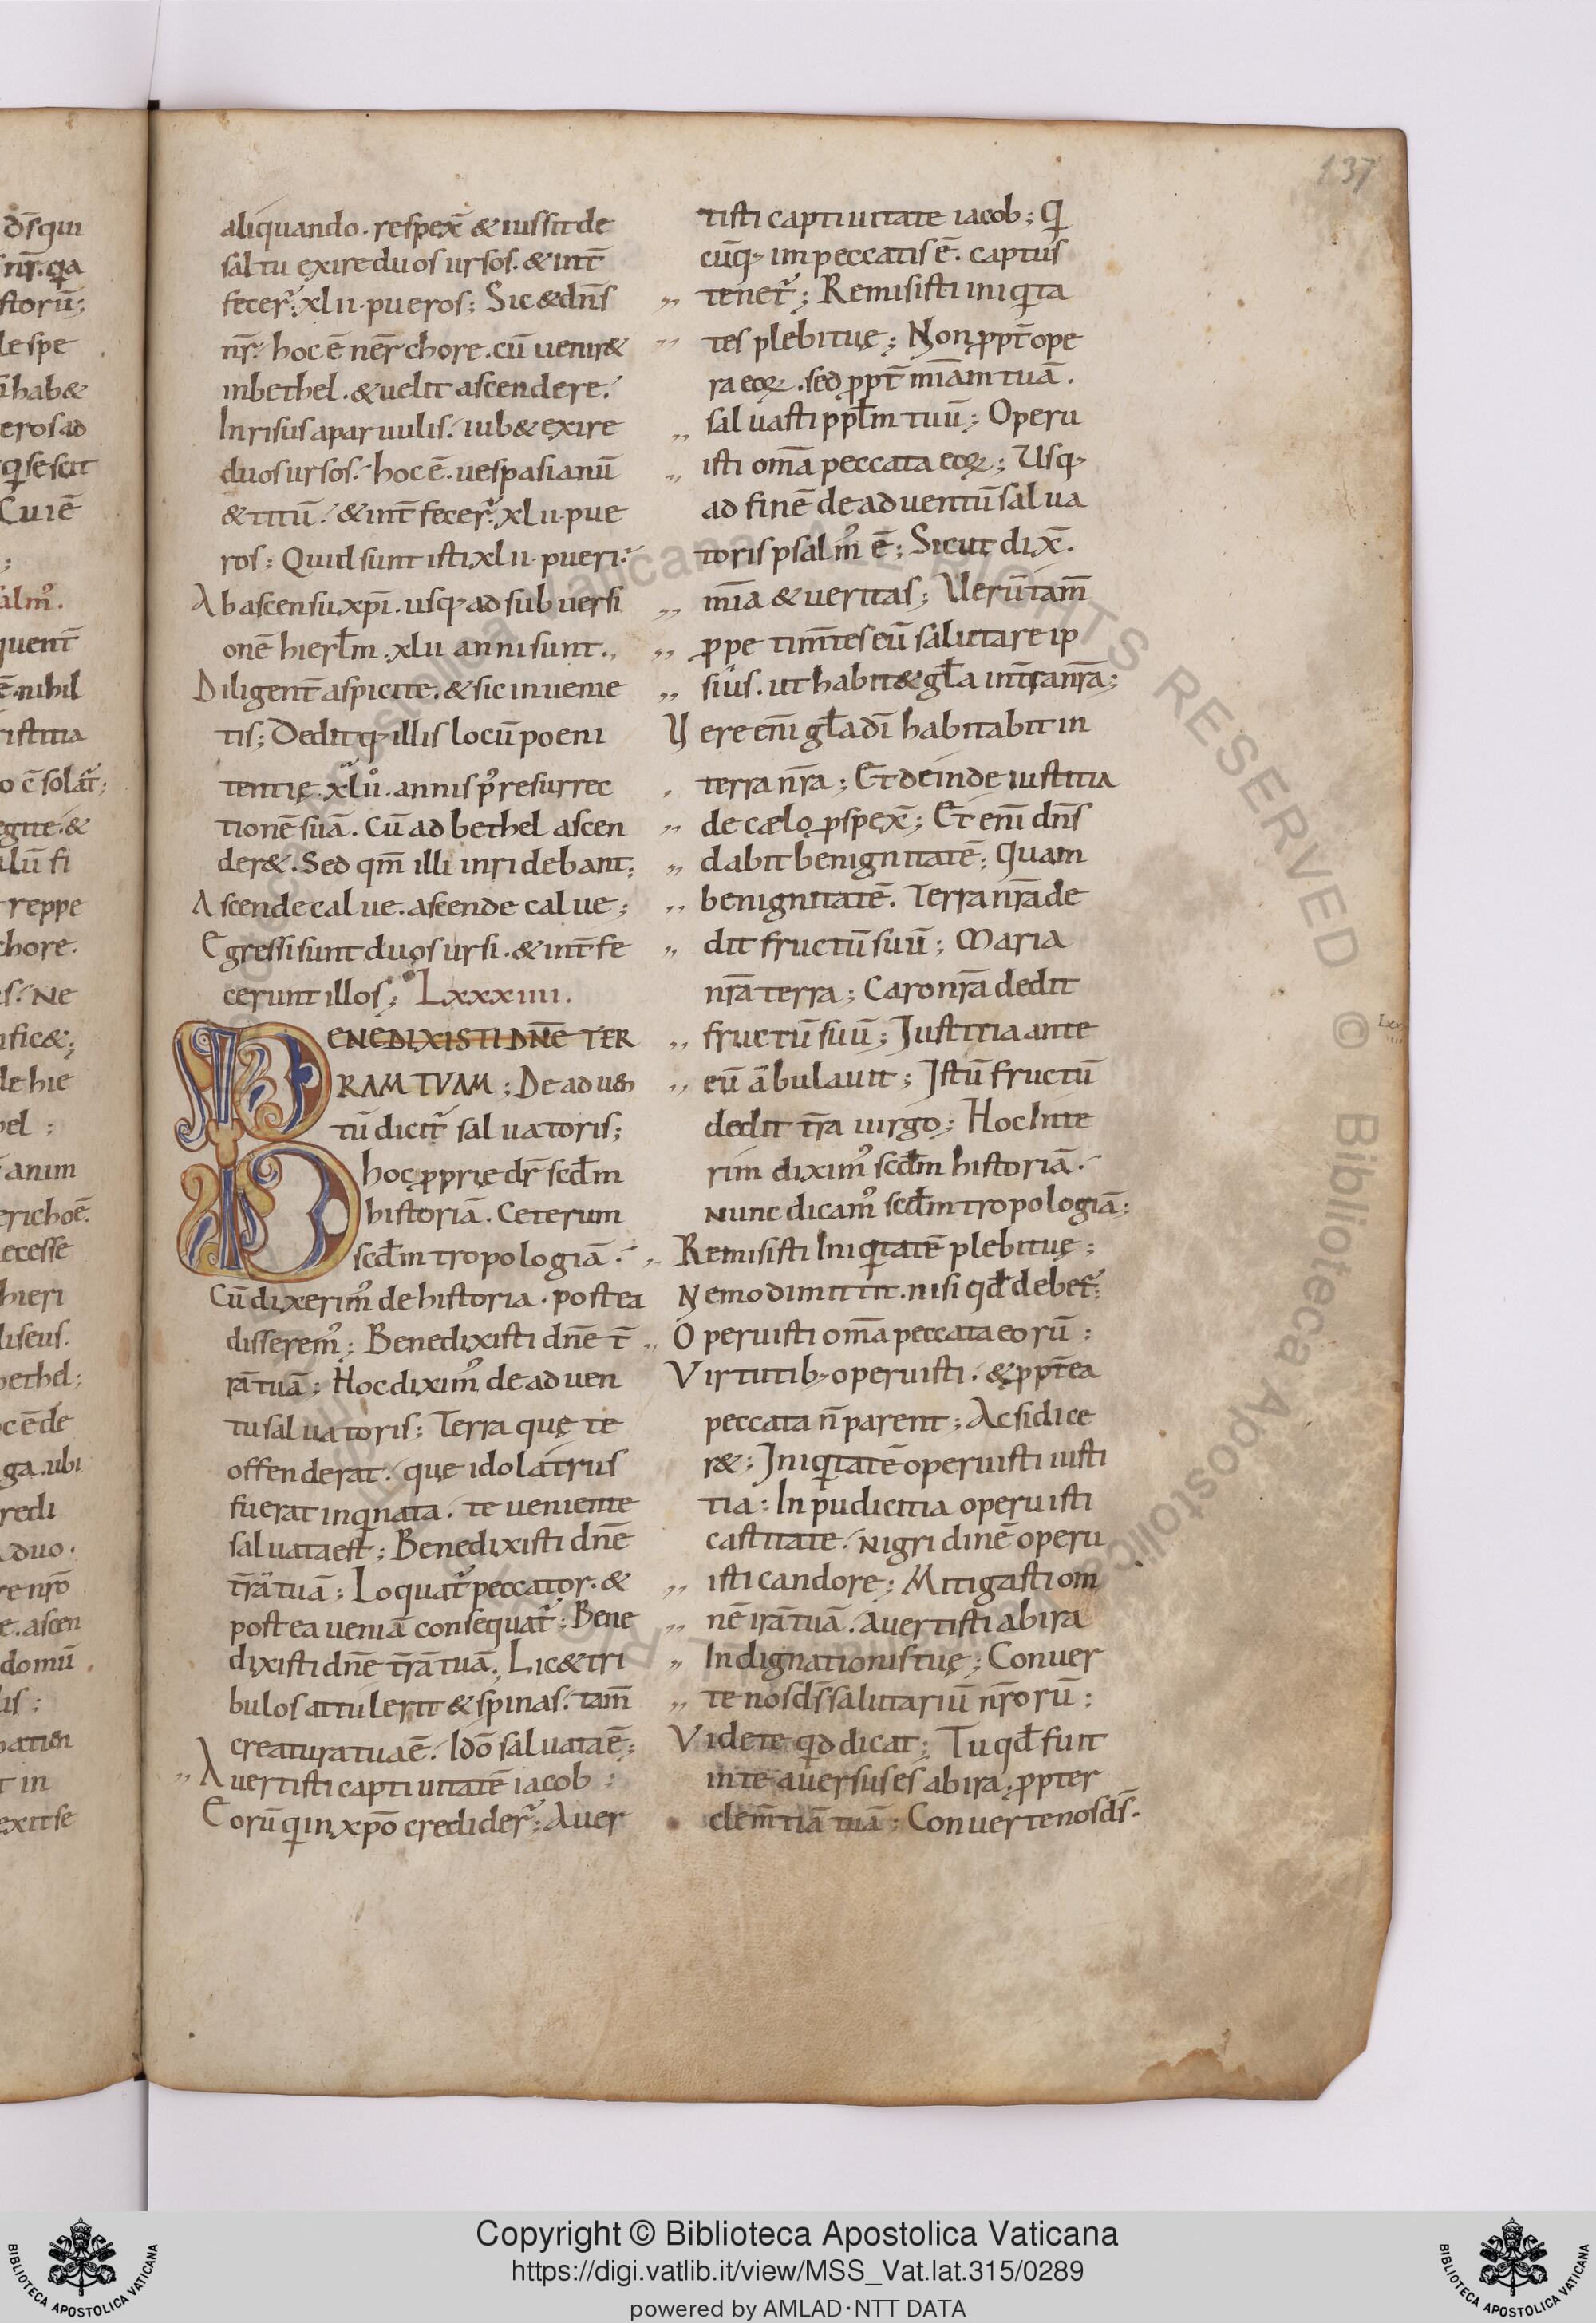 137
dsqui
nr̄. qa
storū;
le spe
hab&
eros ad
qi se scit
Cui ē
;
alm᷒.
quent̄
ē. nihil
ristitia
o c̄solat᷑;
egite. &
ulū fi
reppe
chore.
Ne
fic&;
de hie
bel :
anim
erichoē.
ecesse
hieri
liseus.
bethel;
cēde
ga. ubi
redi
duo.
re nr̄o
e. ascen
domū.
lis;
t in
exit se
aliquando. respex̄ & iussit de
saltu exire duos ursos. & int̄
fecer᷑. xlii. pueros; Sic & dn̄s
nr̄. hoc ē ner̄ chore. cū uenir&
in bethel. & uelit ascendere.
Inrisus a paruulis. iub& exire
duos ursos. hoc ē. uespasianū
& titū. & int̄fecer᷑. xlii. pue
ros; Quid sunt isti xlii. pueri.
Ab ascensu xpi̅. usq; ad subuersi
onē hierl̄m. xlii anni sunt.
Diligent̄ aspicite. & sic inuenie
tis; Dedit q; illis locū poeni
tentię. xlii. annis p᷒ resurrec
tionē suā. Cū ad bethel ascen
der&. Sed qm̄ illi inridebant;
Ascende calue. ascende calue;
Egressi sunt duo ursi. & int̄fe
cerunt illos; Lxxxiiii.
BENEDIXISTI DN̄E TER
RAM TVAM; De aduen
tū dicit᷑ saluatoris;
hoc ꝓprie dr̄ scd̄m
historiā. Ceterum
scd̄m tropologiā.
Cū dixerim᷒ de historia. postea
disserem᷒; Benedixisti dn̄e t̄
rā tuā; Hoc dixim᷒ de aduen
tu saluatoris; Terra quę te
offenderat. quę idolatriis
fuerat inqinata. te ueniente
saluata est; Benedixisti dn̄e
t̄rā tuā; Loquat᷑ peccator. &
postea ueniā consequat᷑; Bene
dixisti dn̄e t̄rā tuā. Lic& tri
bulos attulerit & spinas. tam̄
creatura tua ē. Idō saluata ē;
Auertisti captiuitatē iacob;
Eorū qi in xp̄o credider᷑; Auer
tisti captiuitate iacob; Qi
cūq; im peccatis ē. captus
tenet᷑; Remisisti iniqita
tes plebi tuę; Non ꝓpt̄ ope
ra eoꝝ. sed ꝓpt̄ mīam tuā.
saluasti ppl̄m tuū; Operu
isti om̄a peccata eoꝝ; Usq;
ad finē de aduentū salua
toris psalm᷒ ē; Sicut dix̄.
mīa & ueritas; Uerūtam̄
ꝓpe tim̄tes eū salutare ip
sius. ut habit& gl̄a in t̄ra nr̄a;
Uere eni̅ gl̄a di̅ habitabit in
terra nr̄a; Et deinde iustitia
de cælo ꝓspex̄; Et eni̅ dn̄s
dabit benignitatē; Quam
benignitatē. Terra nr̄a de
dit fructū suū; Maria
nr̄a terra; Caro nr̄a dedit
fructū suū; Iustitia ante
eū ābulauit; Istū fructū
dedit t̄ra uirgo; Hoc Inte
rim dixim᷒ scd̄m historiā.
Nunc dicam᷒ scd̄m tropologiā;
Remisisti Iniqitatē plebi tuę;
Nemo dimittit. nisi qd̄ debet᷑;
Operuisti om̄a peccata eorū;
Virtutib; operuisti. & ꝓpt̄ea
peccata n̄ parent; Ac si dice
r&; Iniqitatē operuisti iusti
tia; In pudicitia operuisti
castitate. Nigridinē operu
isti candore; Mitigasti om
nē irā tuā. Auertisti ab ira
Indignationis tuę; Conuer
te nos ds̄ salutariū nr̄orū;
Videte qd dicat; Tu qd̄ fuit
in te auersus es ab ira ꝓpter
clem̄tiā tuā; Conuerte nos ds̄.
Biblioteca Apostolica Vaticana ALL RIGHTS RESERVED © Biblioteca Apostolica Vaticana
Copyright © Biblioteca Apostolica Vaticana
https://digi.vatlib.it/view/MSS_Vat.lat.315/0289
powered by AMLAD·NTT DATA
BIBLIOTECA APOSTOLICA VATICANA
BIBLIOTECA APOSTOLICA VATICANA